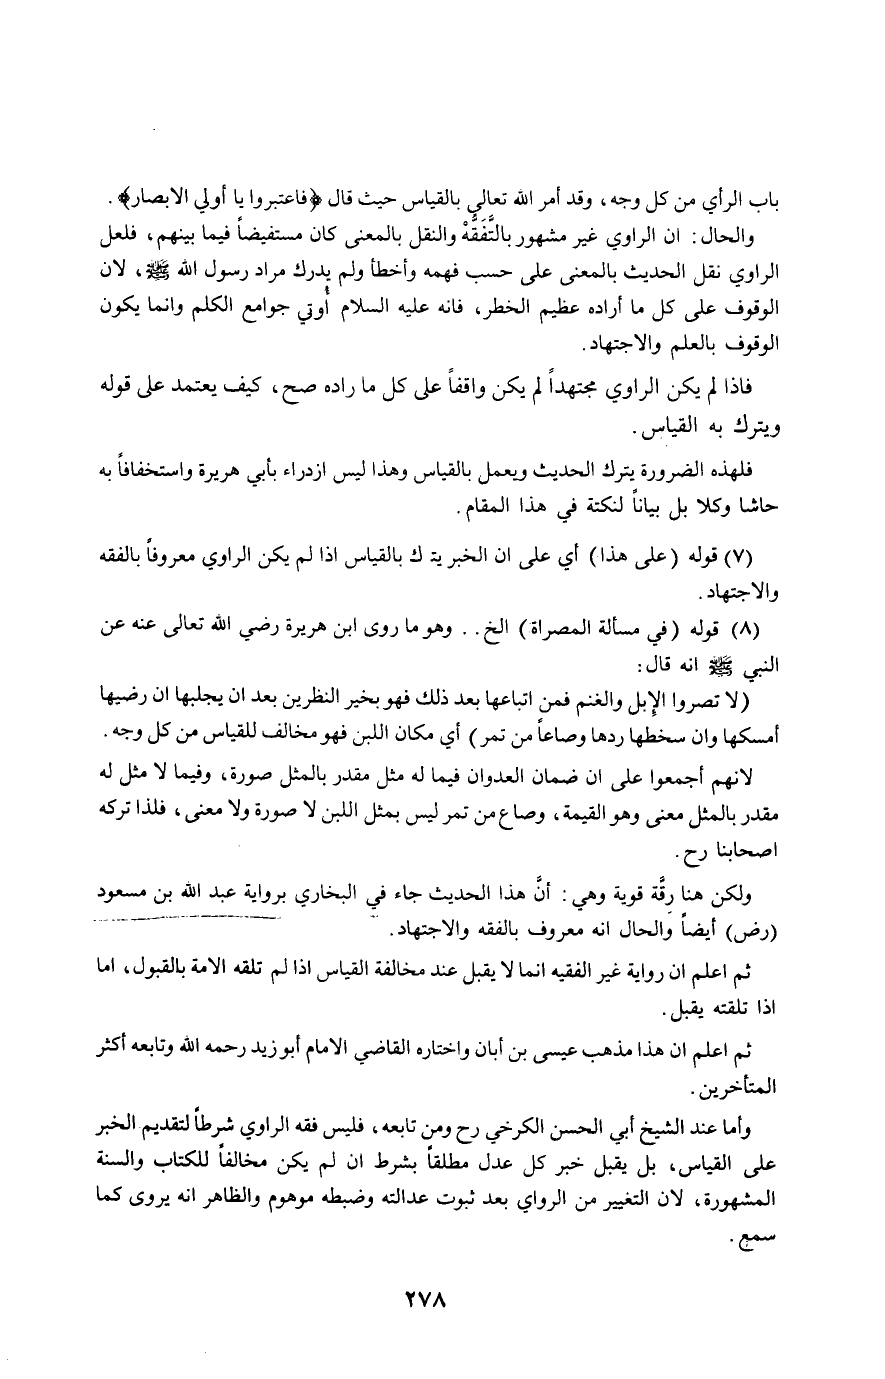 باب الرأي من كل وجه، وقد أمر الله تعالى بالقياس حيث قال ﴿فاعتبروا يا أولي الابصار﴾.
والحال: ان الراوي غير مشهور بالتَّفَقُّهْ والنقل بالمعنى كان مستفيضاً فيما بينهم، فلعل
الراوي نقل الحديث بالمعنى على حسب فهمه وأخطأ ولم يدرك مراد رسول الله ﷺ، لان
الوقوف على كل ما أراده عظيم الخطر، فانه عليه السلام أُوتي جوامع الكلم وانما يكون
الوقوف بالعلم والاجتهاد.
فاذا لم يكن الراوي مجتهداً لم يكن واقفاً على كل ما راده صح، كيف يعتمد على قوله
ويترك به القياس.
فلهذه الضرورة يترك الحديث ويعمل بالقياس وهذا ليس ازدراء بأبي هريرة واستخفافاً به
حاشا وكلا بل بياناً لنكتة في هذا المقام.
(٧) قوله (على هذا) أي على ان الخبر يترك بالقياس اذا لم يكن الراوي معروفاً بالفقه
والاجتهاد.
(٨) قوله (في مسألة المصراة) الخ.. وهو ما روى ابن هريرة رضي الله تعالى عنه عن
النبي ﷺ انه قال:
(لا تصروا الإبل والغنم فمن اتباعها بعد ذلك فهو بخير النظرين بعد ان يجلبها ان رضيها
أمسكها وان سخطها ردها وصاعاً من تمر) أي مكان اللبن فهو مخالف للقياس من كل وجه.
لانهم أجمعوا على ان ضمان العدوان فيما له مثل مقدر بالمثل صورة، وفيما لا مثل له
مقدر بالمثل معنى وهو القيمة، وصاع من تمر ليس بمثل اللبن لا صورة ولا معنى، فلذا تركه
اصحابنا رح.
ولكن هنا رِقَّة قوية وهي: أنَّ هذا الحديث جاء في البخاري برواية عبد الله بن مسعود
(رض) أيضاً والحال انه معروف بالفقه والاجتهاد.
ثم اعلم ان رواية غير الفقيه انما لا يقبل عند مخالفة القياس اذا لم تلقه الامة بالقبول، اما
اذا تلقته يقبل.
ثم اعلم ان هذا مذهب عيسى بن أبان واختاره القاضي الامام أبو زيد رحمه الله وتابعه أكثر
المتأخرين.
وأما عند الشيخ أبي الحسن الكرخي رح ومن تابعه، فليس فقه الراوي شرطاً لتقديم الخبر
على القياس، بل يقبل خبر كل عدل مطلقاً بشرط ان لم يكن مخالفاً للكتاب والسنة
المشهورة، لان التغيير من الرواي بعد ثبوت عدالته وضبطه موهوم والظاهر انه يروى كما
سمع.
٢٧٨